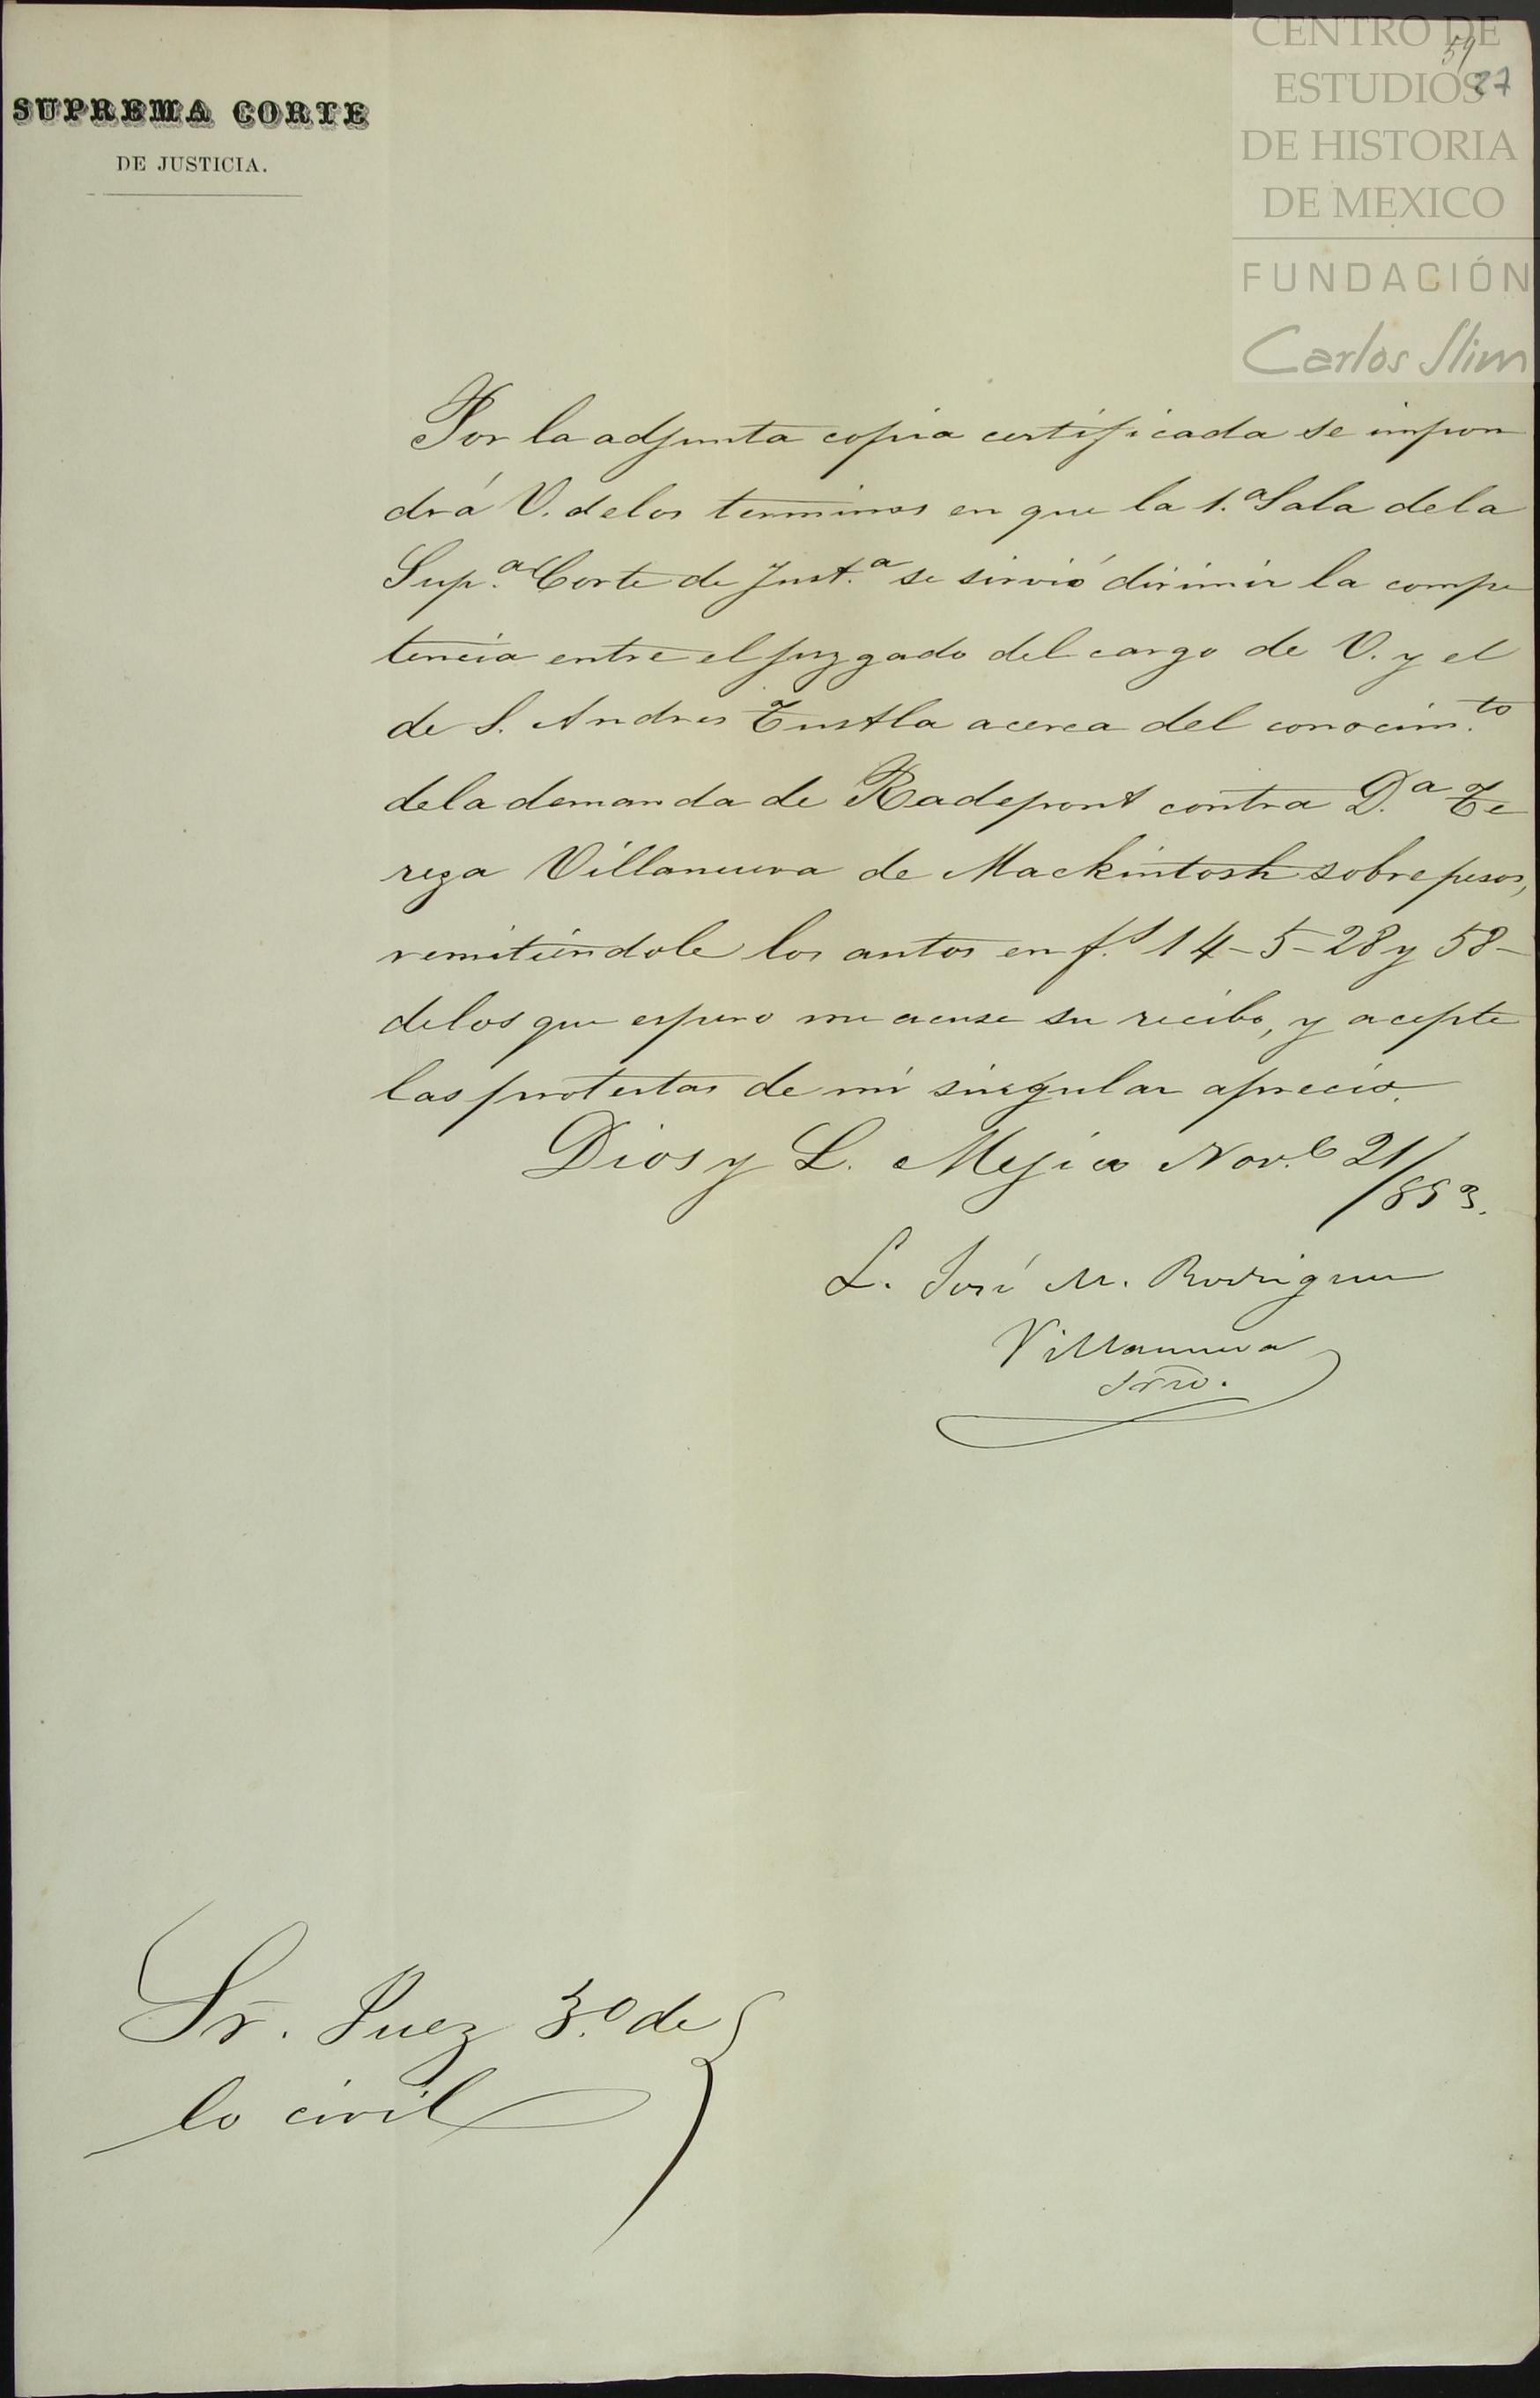 SUPREMA CORTE
DE JUSTICIA.
CENTRO DE
ESTUDIOS
DE HISTORIA
DE MEXICO
FUNDACIÓN
Carlos Slim
59
27
Por la adjunta copia certificada se impon
drá V. de los terminos en que la 1.ª Sala de la
Sup.ª Corte de Just.ª se sirvió dirimir la compe
tencia entre el juzgado del cargo de V. y el
de S. Andres Tustla acerca del conocim.to
de la demanda de Radepont contra D.ª Te
reza Villanueva de Mackintosh sobre pesos,
remitiéndole los autos en f.s 14-5-28 y 58-
de los que espero me acuse su recibo, y acepte
las protestas de mi singular aprecio.
Dios y L. Mejico Nov.e 21/
/853.
L. José M. Rodriguez
Villanueva
Srio.
Sr. Juez 3.º de
lo civil